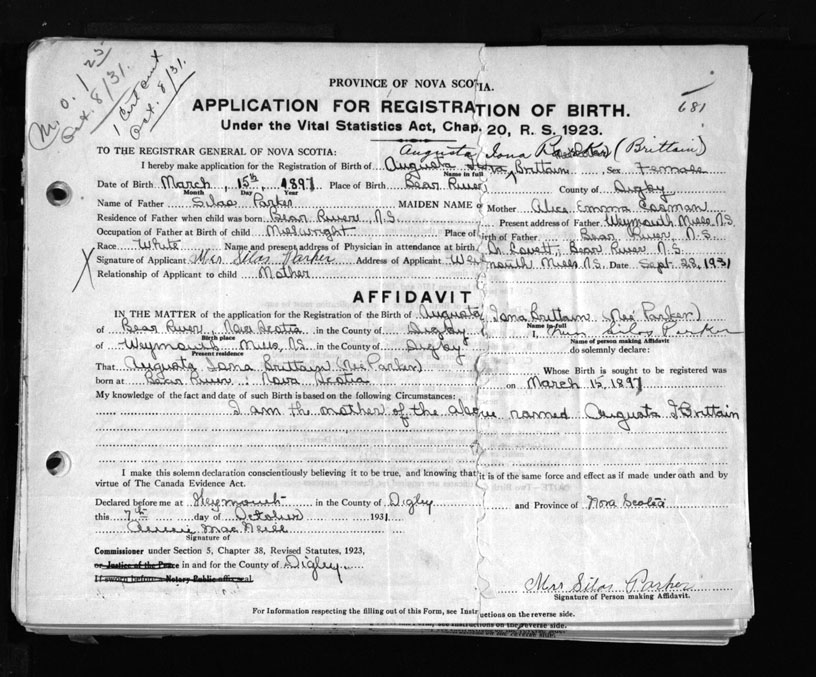 M. O. 1 25
Oct. 8/31.
1 Cert out
Oct. 8/31.
681
PROVINCE OF NOVA SCOTIA.
APPLICATION FOR REGISTRATION OF BIRTH.
Under the Vital Statistics Act, Chap. 20, R. S. 1923.
TO THE REGISTRAR GENERAL OF NOVA SCOTIA: Augusta Iona Parker (Brittain)
I hereby make application for the Registration of Birth of Augusta Iona Brittain Sex Female
Name in full
Date of Birth March 15th 1897 Place of Birth Bear River County of Digby
Month Day Year
Name of Father Silas Parker MAIDEN NAME of Mother Alice Emma
Residence of Father when child was born Bear River, N.S. Present address of Father Weymouth Mills N.S.
Occupation of Father at Birth Millwright Place of Birth of Father Bear River N.S.
Race White Name and present address of Physician in attendance at birth Dr. Lovett, Bear River N.S.
Signature of Applicant Mrs Silas Parker Address of Applicant Weymouth Mills N.S. Date Sept. 28, 1931
Relationship of Applicant to child Mother
AFFIDAVIT
IN THE MATTER of the application for the Registration of the Birth of Augusta Iona Brittain (Nee Parker)
Name in full
of Bear River, Nova Scotia in the County of Digby I, Mrs Silas Parker
Birth place Name of person making Affidavit
of Weymouth Mills, N.S. in the County of Digby do solemnly declare:
Present residence
That Augusta Iona Brittain (Nee Parker) Whose Birth is sought to be registered was
born at Bear River Nova Scotia on March 15, 1897
My knowledge of the fact and date of such Birth is based on the following Circumstances:
I am the mother of the above named Augusta I Brittain
I make this solemn declaration conscientiously believing it to be true, and knowing that it is of the same force and effect as if made under oath and by
virtue of The Canada Evidence Act.
Declared before me at Weymouth in the County of Digby and Province of Nova Scotia
this 7th day of October 1931
Signature of
Commissioner under Section 5, Chapter 38, Revised Statutes, 1923,
or Justice of the Peace in and for the County of Digby.
If sworn before Notary Public affix seal
Mrs Silas Parker
Signature of Person making Affidavit.
For Information respecting the filling out of this Form, see Instructions on the reverse side.